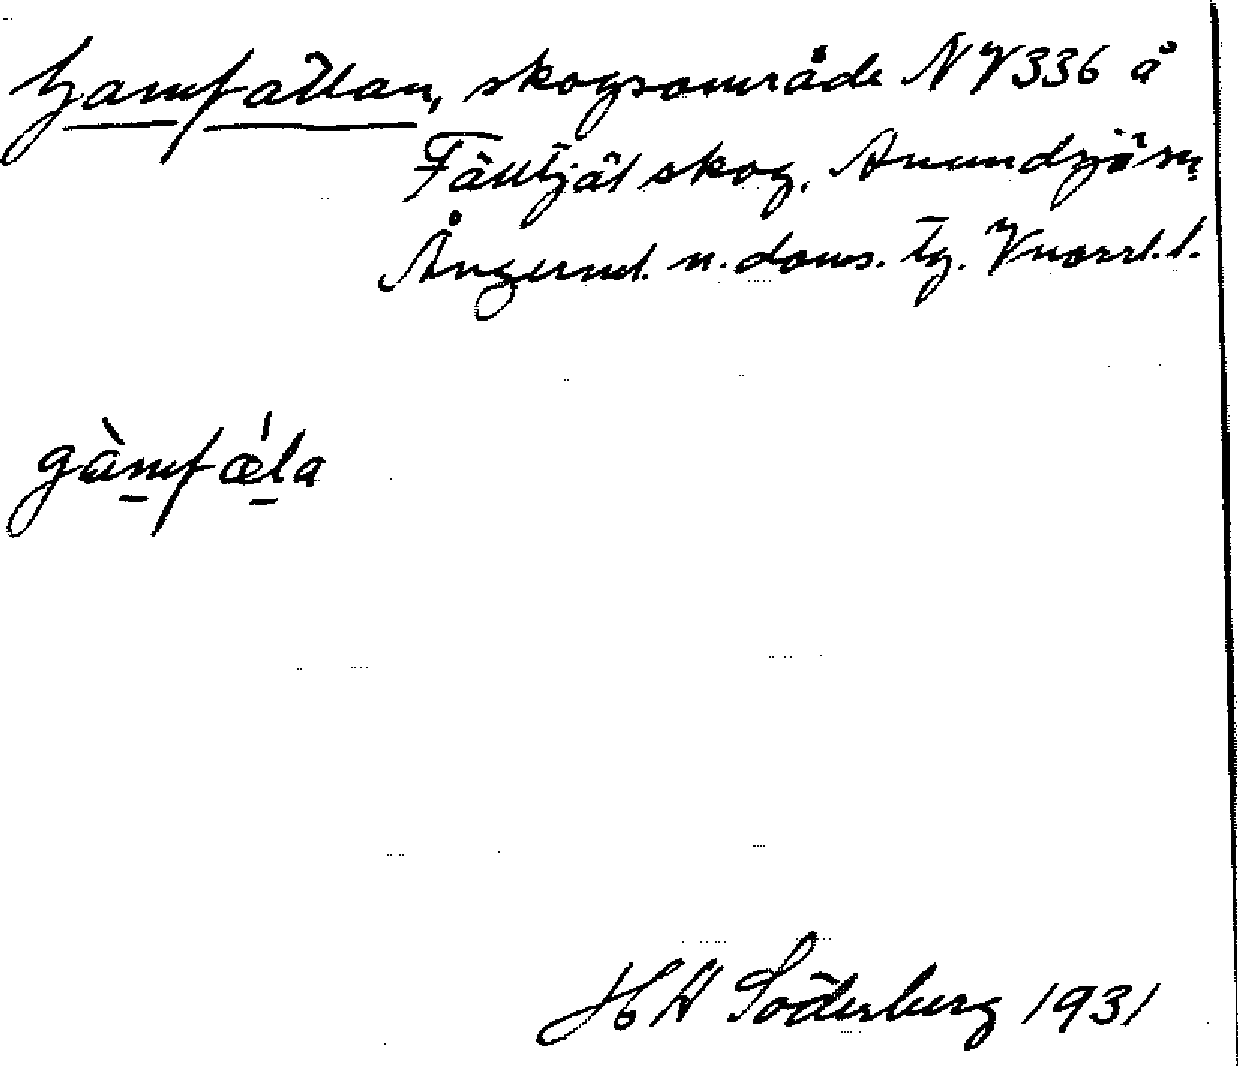 Gamfällan, skogsområde NV 336 å
Fälltjäl skog, Anundsjö sn,
Ångerml. n. doms. tg. Vnorrl. l.
gàmfǽla
H W Söderberg 1931